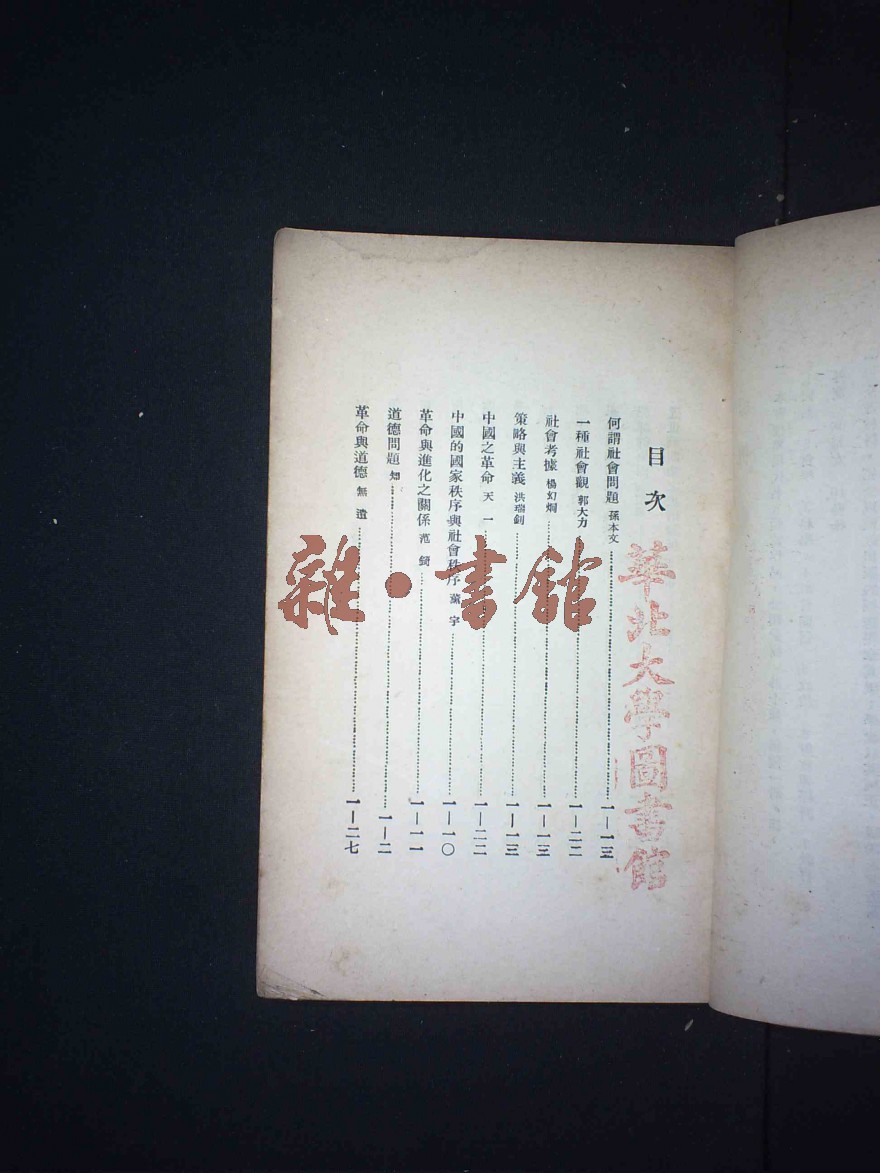 目次
何謂社會問題 孫本文……一—一三
一種社會觀 郭大力……一—二二
社會考據 楊幻烱……一—一三
策略與主義 洪瑞釗……一—一三
中國之革命 天一……一—二二
中國的國家秩序與社會秩序 薰宇……一—一〇
革命與進化之關係 范錡……一—一一
道德問題 知……一—二
革命與道德 無遺……一—二七
華北大學圖書館
雜·書館